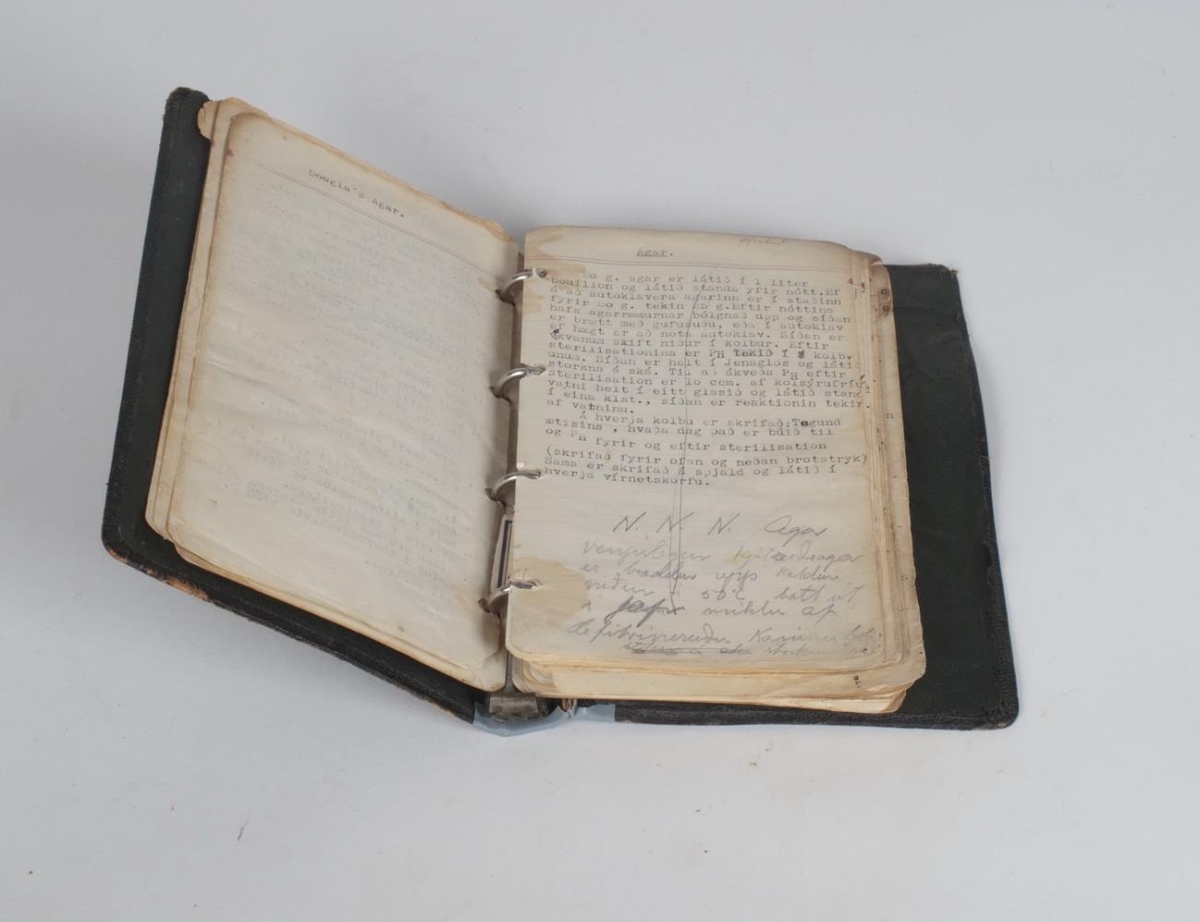 Dougla's Agar.
Agar.
2o g. agar er látið í 1 liter
bouillon og látið standa yfir nótt. Ef
á að autoklavera agarinn er í staðinn
fyrir 2o g. tekin 25 g. Eftir nóttina
hafa agarræmurnar bólgnað upp og síðan
er brætt með gufusuðu, eða í autoklav
ef hægt er að nota autoklav. Síðan er
skift niður í kolbur. Eftir
sterilisationina er PH tekið í kolb-
unum. Síðan er helt í Jenaglös og látið
storkna á ská. Til að ákveða PH eftir
sterilisation er 1o ccm. af kolsýrufríu
vatni helt í eitt glasið og látið stand
í eina klst., síðan er reaktionin tekin
af vatninu.
Á hverja kolbu er skrifað: Tegund
ætisins, hvaða dag það er búið til
og PH fyrir og eftir sterilisation
(skrifað fyrir ofan og neðan brotstryk)
Sama er skrifað á spjald og látið í
hverja vírnetskörfu.
N. N. N. Agar
venjulegur
er upp
niður í 50°c
í jafn miklu af